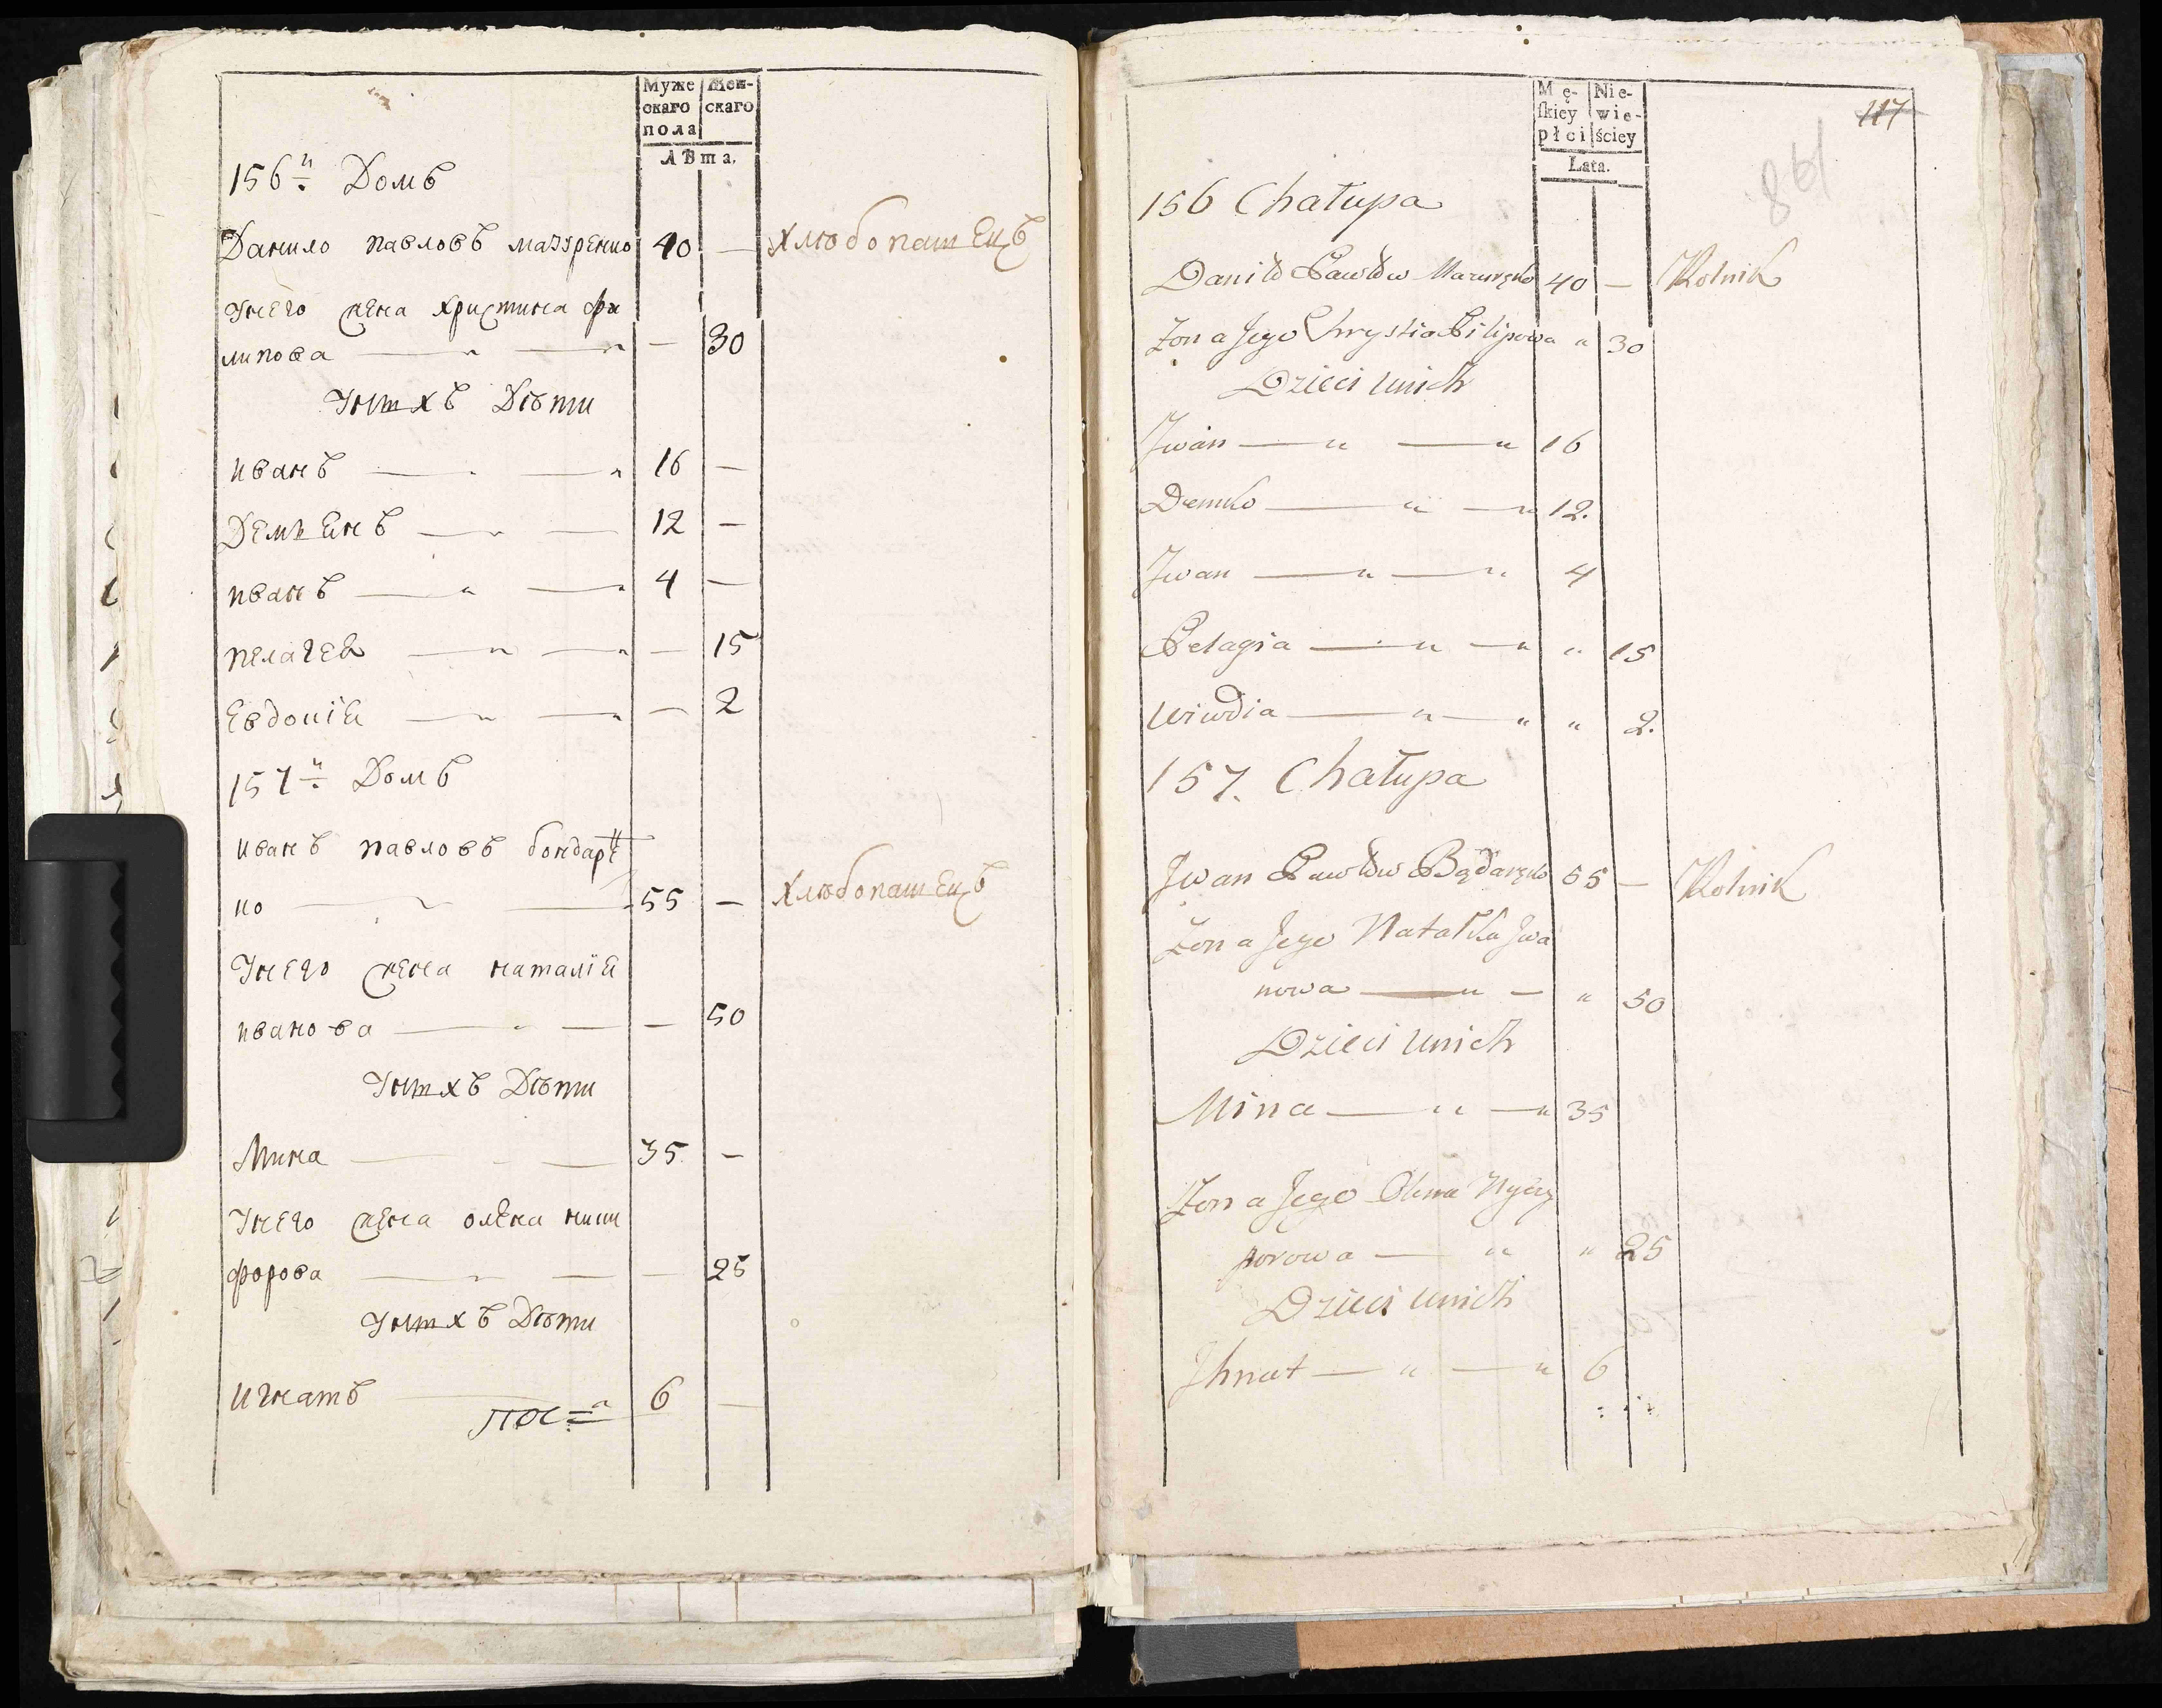 Муже Жен-
скаго скаго
пола
Лѣта.
156й Домъ
Данило Павловъ мазуренко 40 — хлѣбопашецъ
Унего жена христина фи
липова — " — " — 30
Унихъ Дѣти
иванъ — " — " 16 —
Демьянъ — " — 12 —
иванъ — " — " 4 —
пелагея — " — " — 15
Евдокія — " — " — 2
157й Домъ
иванъ павловъ бондарен
ко — " — 55 — хлѣбопашецъ
Унего жена наталія
иванова — " — — 50
Унихъ Дѣти
Мина — " — 35 —
Унего жена олена ники
форова — " — — 25
Унихъ Дѣти
игнатъ — " 6 —
Mę- Nie-
ſkiey wie-
płci ściey
Lata.
117
198
156 Chałupa
Daniło Pawłow Mazuręko 40 — Rolnik
Zona Jego Chrystia Pilipowa " 30
Dzieci unich
Jwan — " — " 16
Demko — " — " 12.
Jwan — " — " 4
Pelagia — " — " " 15
Wiwdia — " — " " 2.
157. Chałupa
Jwan Pawłow Bądaręko 55 — Rolnik
Zona Jego Natalka Jwa
nowa — " — " 50
Dzieci unich
Mina — " — " 35
Zona Jego Olena Nyczy
porowa — " " 25
Dzieci unich
Jhnat — " — " 6